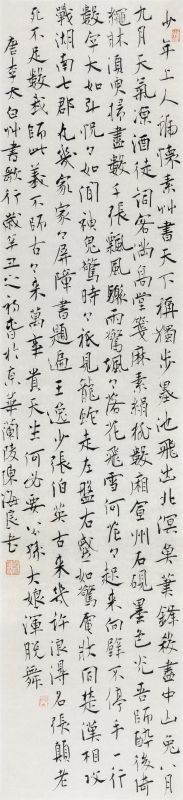 少年上人號懷素艸書天下稱獨步墨池飛出北溟魚筆鋒殺盡中山兔八月
九月天氣凉酒徒詞客滿高堂箋麻素絹排數厢宣州石硯墨色光吾師醉後倚
繩床須臾掃盡數千張飄風驟雨驚颯々落花飛雪何茫々起來向壁不停手一行
數字大如斗怳々如聞神鬼驚時々祇見龍蛇走左盤右蹙如驚電狀同楚漢相攻
戰湖南七郡凡幾家家々屏障書題遍王逸少張伯英古來幾許浪得名張顛老
死不足數我師此義不師古々來萬事貴天生何必要公孫大娘渾脫舞
唐李太白艸書歌行歲辛丑之初春於京華蘭陵陳海良書